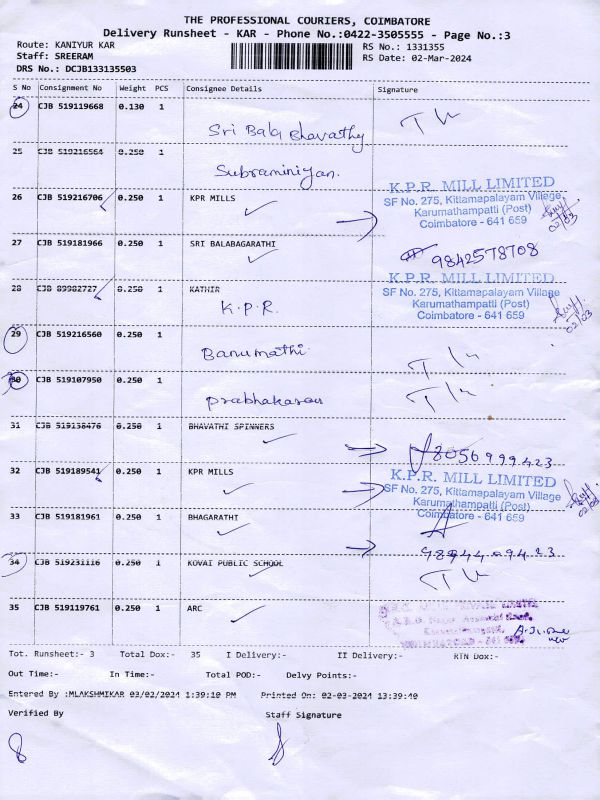 THE PROFESSIONAL COURIERS, COIMBATORE
Delivery Runsheet - KAR - Phone No.:0422-3505555 - Page No.:3
Route: KANIYUR KAR
RS No.: 1331355
Staff: SREERAM
RS Date: 02-Mar-2024
DRS No.: DCJB133135503
S No Consignment No Weight PCS Consignee Details Signature
24 CJB 519119668 0.130 1
Sri Bala Bhavathy
25 CJB 519216564 0.250 1
Subraminiyan.
26 CJB 519216706 0.250 1 KPR MILLS
K.P.R. MILL LIMITED
SF No. 275, Kittampalayam Village
Karumathampatti (Post)
Coimbatore - 641 659
02/03
27 CJB 519181966 0.250 1 SRI BALABAGARATHI
9842578708
28 CJB 89982727 0.250 1 KATHIR
K.P.R.
K.P.R. MILL LIMITED
SF No. 275, Kittampalayam Village
Karumathampatti (Post)
Coimbatore - 641 659
02/03
29 CJB 519216560 0.250 1
Banumathi
30 CJB 519107950 0.250 1
Prabhakaran
31 CJB 519138476 0.250 1 BHAVATHI SPINNERS
8056999423
32 CJB 519189541 0.250 1 KPR MILLS
K.P.R. MILL LIMITED
SF No. 275, Kittampalayam Village
Karumathampatti (Post)
Coimbatore - 641 659
33 CJB 519181961 0.250 1 BHAGARATHI
34 CJB 519231116 0.250 1 KOVAI PUBLIC SCHOOL
35 CJB 519119761 0.250 1 ARC
Tot. Runsheet:- 3 Total Dox:- 35 I Delivery:- II Delivery:- RTN Dox:-
Out Time:- In Time:- Total POD:- Delvy Points:-
Entered By :MLAKSHMIKAR 03/02/2024 1:39:10 PM Printed On: 02-03-2024 13:39:40
Verified By Staff Signature